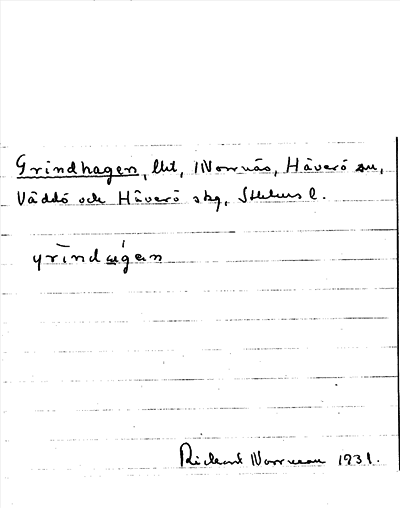 Grindhagen, lht, Norrnäs, Häverö sn,
Väddö och Häverö skg, Sthlms l.
Norrman 1931.